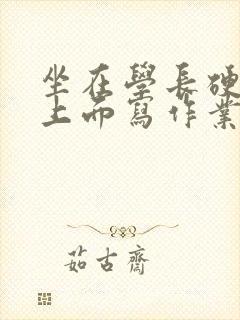 坐在學長硬
上而寫作業
茹古齋